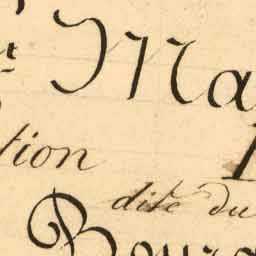 Ma
tion
dite du
Bourg